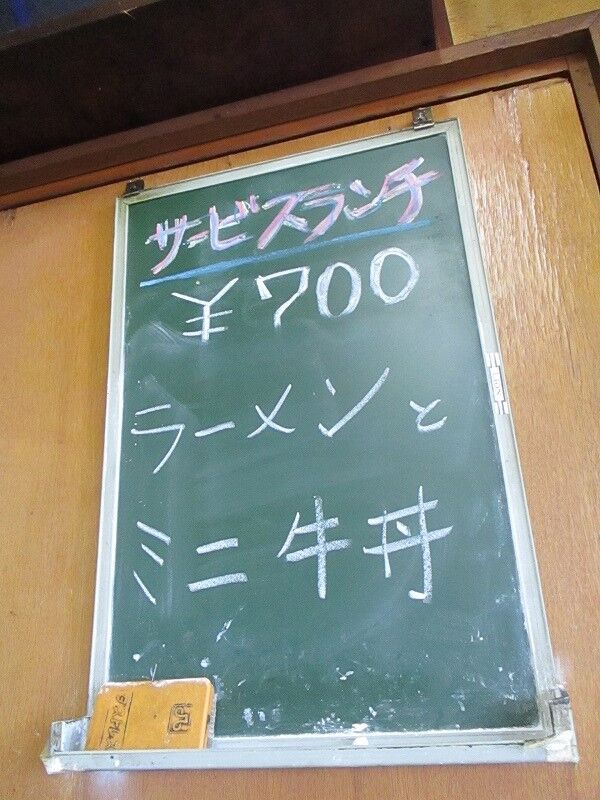 サービスランチ
¥700
ラーメンと
ミニ牛丼